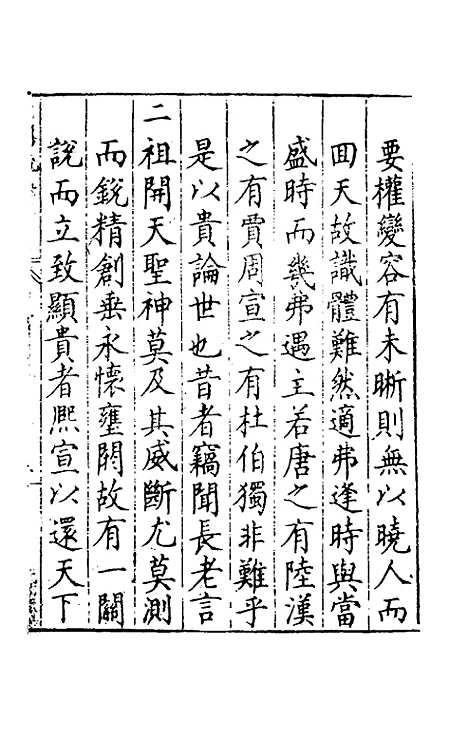 要權變容有未晰則無以曉人而
回天故識體難然適弗逢時與當
盛時而幾弗遇主若唐之有陸漢
之有賈周宣之有杜伯獨非難乎
是以貴論世也昔者竊聞長老言
二祖開天聖神莫及其威斷尤莫測
而銳精創垂永懷壅閼故有一關
說而立致顯貴者熙宣以還天下